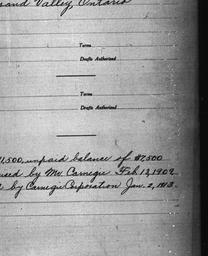 and Valley, Ontario
Terms
Drafts Authorized
Terms
Drafts Authorized
1,500, unpaid balance of $7,500
ised by Mr. Carnegie Feb 13, 1909
by Carnegie Corporation Jan. 2, 1913.